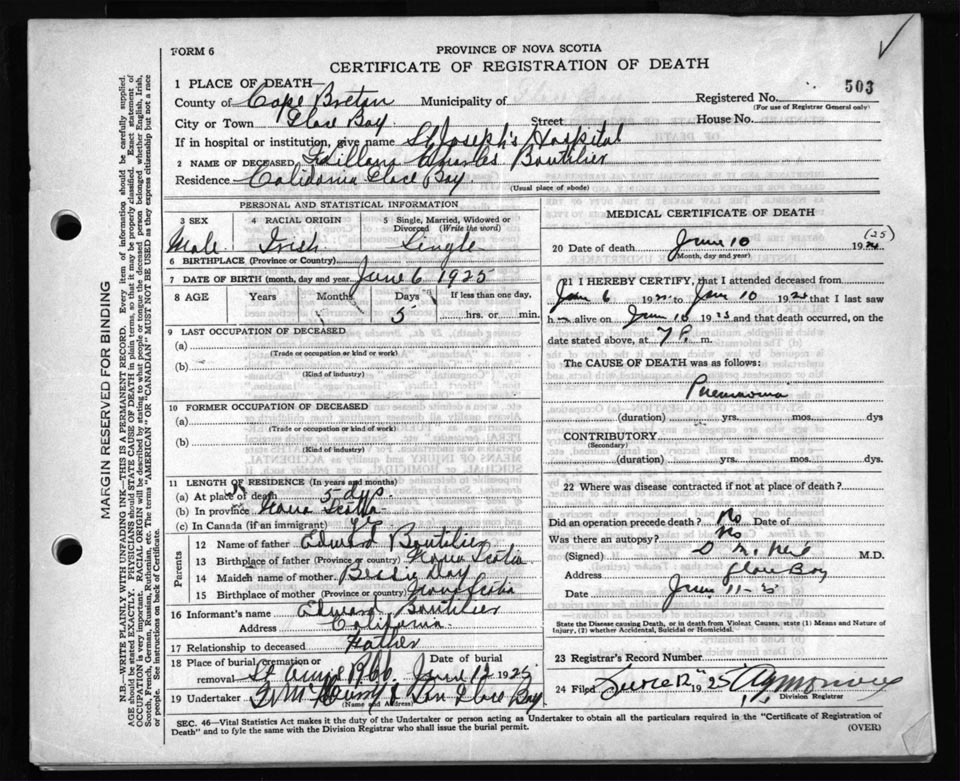 FORM 6
PROVINCE OF NOVA SCOTIA
CERTIFICATE OF REGISTRATION OF DEATH
1 PLACE OF DEATH—
503
County of Cape Breton Municipality of Registered No.
(For use of Registrar General only)
City or Town Glace Bay. Street House No.
If in hospital or institution, give name St Joseph's Hospital
2 NAME OF DECEASED Charles Boutilier
Residence Glace Bay.
(Usual place of abode)
PERSONAL AND STATISTICAL INFORMATION
3 SEX 4 RACIAL ORIGIN 5 Single, Married, Widowed or Divorced (Write the word)
Male. Irish Single
6 BIRTHPLACE (Province or Country)
7 DATE OF BIRTH (month, day and year) June 6 1925
8 AGE Years Months Days If less than one day,
5 hrs. or min.
9 LAST OCCUPATION OF DECEASED
(a)
(Trade or occupation or kind or work)
(b)
(Kind of industry)
10 FORMER OCCUPATION OF DECEASED
(a)
(Trade or occupation or kind of work)
(b)
(Kind of industry)
11 LENGTH OF RESIDENCE (In years and months)
(a) At place of death 5 dys
(b) In province Nova Scotia
(c) In Canada (if an immigrant)
Parents
12 Name of father Edward Boutilier
13 Birthplace of father (Province or country) Nova Scotia
14 Maiden name of mother Day
15 Birthplace of mother (Province or country) Nova Scotia
16 Informant's name Edward Boutilier
Address
17 Relationship to deceased Father
18 Place of burial, cremation or removal Date of burial
St June 12 1925
19 Undertaker Glace Bay
(Name and Address)
MEDICAL CERTIFICATE OF DEATH
20 Date of death June 10 19 (25)
(Month, day and year)
21 I HEREBY CERTIFY, that I attended deceased from
June 6 19 to June 10 19 that I last saw
h alive on June 10 1925 and that death occurred, on
date stated above, at 7 P. m.
The CAUSE OF DEATH was as follows:
Pneumonia
(duration) yrs. mos. dys
CONTRIBUTORY
(Secondary)
(duration) yrs. mos. dys.
22 Where was disease contracted if not at place of death?
Did an operation precede death? No Date of
Was there an autopsy? No
(Signed) M.D.
Address Glace Bay
Date June 11
State the Disease causing Death, or in death from Violent Causes, state (1) Means and Nature of Injury, (2) whether Accidental, Suicidal or Homicidal.
23 Registrar's Record Number
24 Filed 1925
Division Registrar
SEC. 46—Vital Statistics Act makes it the duty of the Undertaker or person acting as Undertaker to obtain all the particulars required in the "Certificate of Registration of
Death" and to fyle the same with the Division Registrar who shall issue the burial permit.
(OVER)
MARGIN RESERVED FOR BINDING
N.B.—WRITE PLAINLY WITH UNFADING INK—THIS IS A PERMANENT RECORD. Every item of information should be carefully supplied.
AGE should be stated EXACTLY. PHYSICIANS should STATE CAUSE OF DEATH in plain terms, so that it may be properly classified. Exact statement of
OCCUPATION is very important. RACIAL ORIGIN will be described by stating to what people or tongue the deceased person belonged whether English, Irish,
Scotch, French, German, Russian, Ruthenian, etc. The terms "AMERICAN" OR "CANADIAN" MUST NOT BE USED as they express citizenship but not a race
or people. See instructions on back of Certificate.